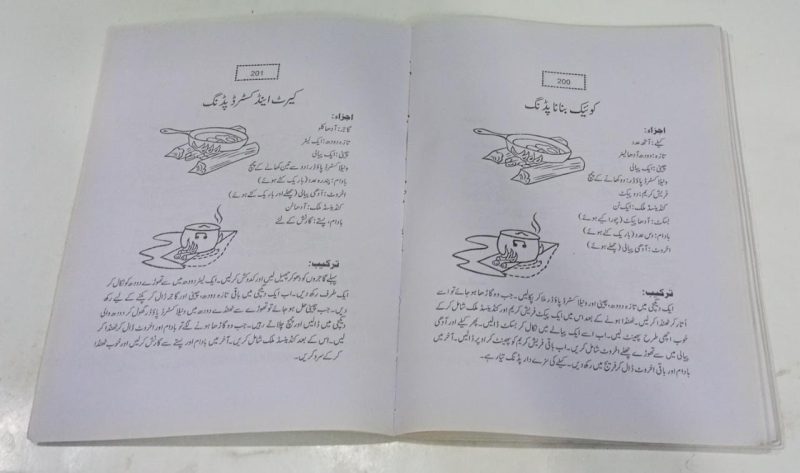 200
کوئیک بنانا پڈنگ
اجزاء:
کیلے: آٹھ عدد
تازہ دودھ: آدھا لیٹر
چینی: ایک پیالی
ونیلا کسٹرڈ پاؤڈر: دو کھانے کے چمچ
فریش کریم: دو پیکٹ
کنڈینسڈ ملک: ایک ٹن
بسکٹ: آدھا پیکٹ (چورا کیے ہوئے)
بادام: دس عدد (باریک کٹے ہوئے)
اخروٹ: آدھی پیالی (چھلے ہوئے)
ترکیب:
ایک دیگچی میں تازہ دودھ، چینی اور ونیلا کسٹرڈ پاؤڈر ملا کر پکالیں۔ جب دو گاڑھا ہو جائے تو اسے
اُتار کر ٹھنڈا کرلیں۔ ٹھنڈا ہونے کے بعد اس میں ایک پیکٹ فریش کریم اور کنڈینسڈ ملک شامل کر کے
خوب اچھی طرح پھینٹ لیں۔ اب اسے ایک پیالے میں نکال کر بسکٹ ڈالیں۔ پھر کیلے اور آدھی
پیالی میں سے تھوڑے چھلے اخروٹ شامل کریں۔ اب باقی فریش کریم کو پھینٹ کر اوپر ڈالیں۔ آخر میں
بادام اور باقی اخروٹ ڈال کر فریج میں رکھ دیں۔ کیلے کی مزے دار پڈنگ تیار ہے۔
201
کیرٹ اینڈ کسٹرڈ پڈنگ
اجزاء:
گاجر: آدھا کلو
تازہ دودھ: ایک لیٹر
چینی: ایک پیالی
ونیلا کسٹرڈ پاؤڈر: دو سے تین کھانے کے چمچ
بادام: پندرہ عدد (باریک کٹے ہوئے)
اخروٹ: آدھی پیالی (چھلے اور باریک کٹے ہوئے)
کنڈینسڈ ملک: آدھا ٹن
بادام، پستے: گارنش کے لئے
ترکیب:
پہلے گاجروں کو دھو کر چھیل لیں اور کدوکش کرلیں۔ ایک لیٹر دودھ میں سے تھوڑے دودھ کو نکال کر
ایک طرف رکھ دیں۔ اب ایک دیگچی میں باقی تازہ دودھ، چینی اور گاجر ڈال کر پکنے کے لیے رکھ
دیں۔ جب چینی حل ہو جائے تو تھوڑے سے ٹھنڈے دودھ میں ونیلا کسٹرڈ پاؤڈر گھول کر دودھ والی
دیگچی میں ڈالیں اور چمچ چلاتے رہیں۔ جب دو گاڑھا ہونے لگے تو بادام اور اخروٹ ڈال کر ٹھنڈا کر
لیں۔ اس کے بعد کنڈینسڈ ملک شامل کریں۔ آخر میں بادام اور پستے سے گارنش کرلیں اور خوب ٹھنڈا
کر کے سرو کریں۔